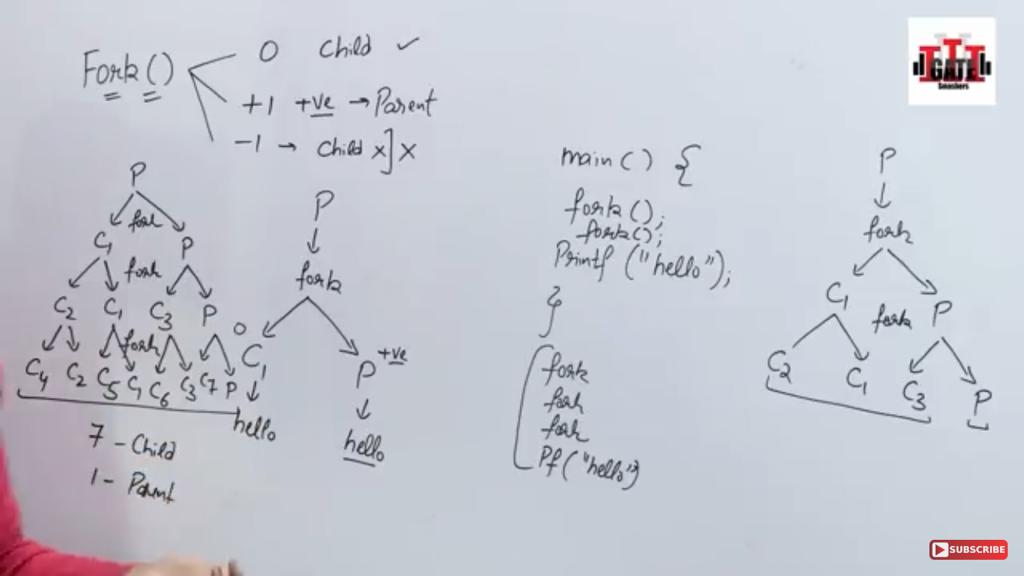 Fork()
0 child ✓
+1 +ve → Parent
-1 → child x] x
P
fork
C1 P
fork
C2 C1 C3 P
fork
C4 C2 C5 C1 C6 C3 C7 P
7 - Child
1 - Parent
P
fork
0 C1 P +ve
hello hello
main() {
fork();
fork();
Printf ("hello");
}
fork
fork
fork
Pf("hello")
P
fork
C1 fork P
C2 C1 C3 P
GATE
Smashers
SUBSCRIBE